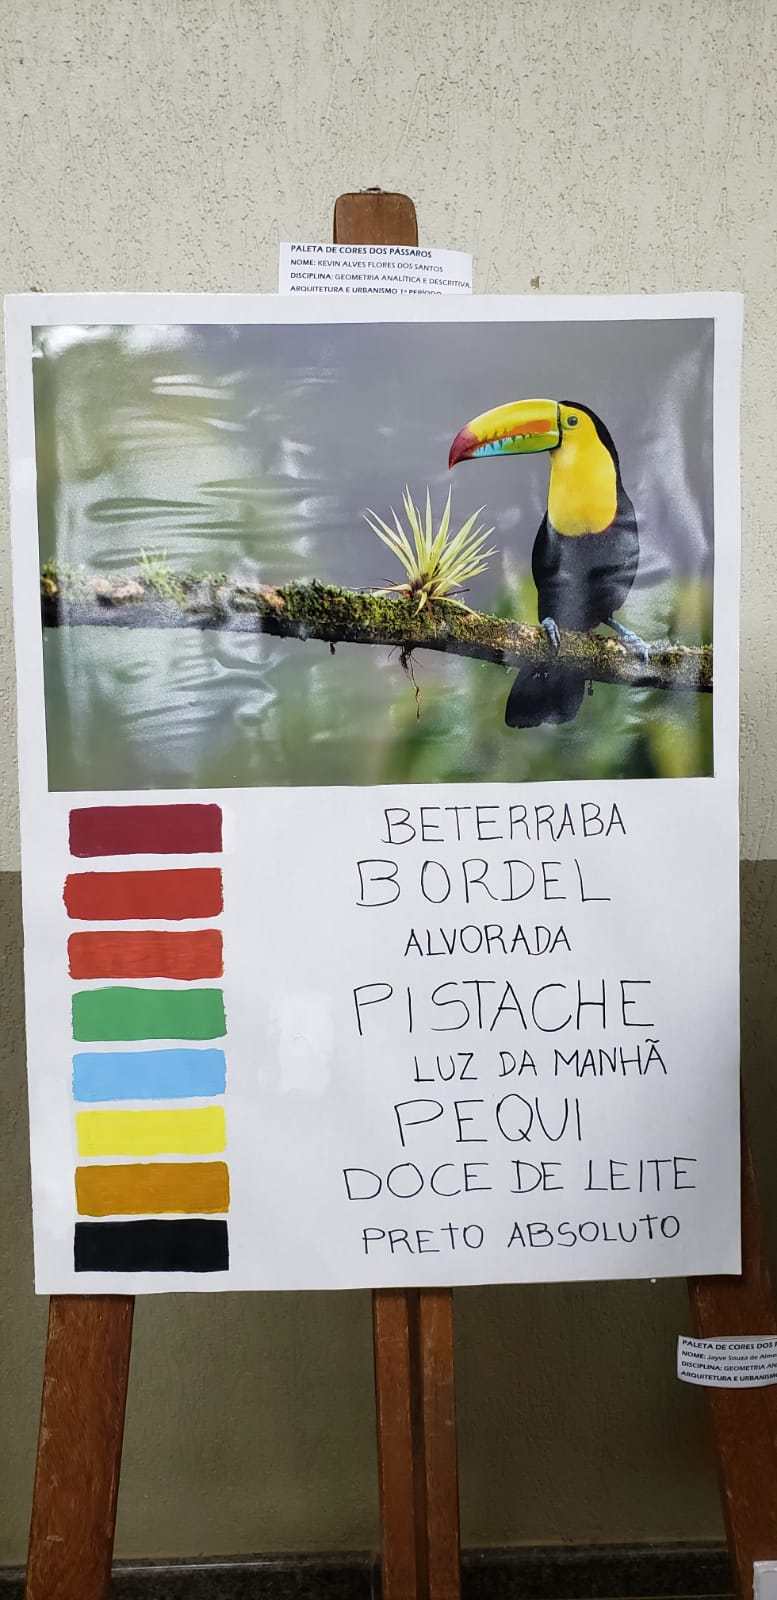 PALETA DE CORES DOS PÁSSAROS
NOME: KEVIN ALVES FLORES DOS SANTOS
DISCIPLINA: GEOMETRIA ANALÍTICA E DESCRITIVA
ARQUITETURA E URBANISMO 1º PERÍODO
BETERRABA
BORDEL
ALVORADA
PISTACHE
LUZ DA MANHÃ
PEQUI
DOCE DE LEITE
PRETO ABSOLUTO
PALETA DE CORES DOS
NOME: Jayve Souza de
DISCIPLINA: GEOMETRIA
ARQUITETURA E